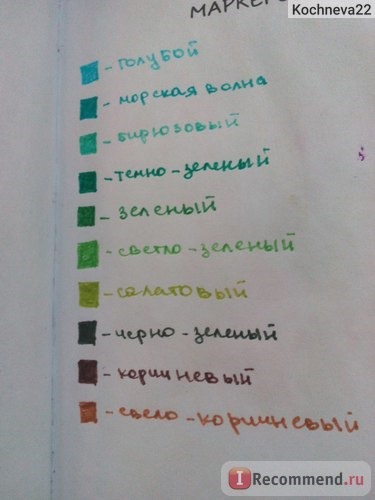 Kochneva22
МАРКЕР
- голубой
- морская волна
- бирюзовый
- темно-зеленый
- зеленый
- светло-зеленый
- салатовый
- черно-зеленый
- коричневый
- свело-коричневый
I Recommend.ru